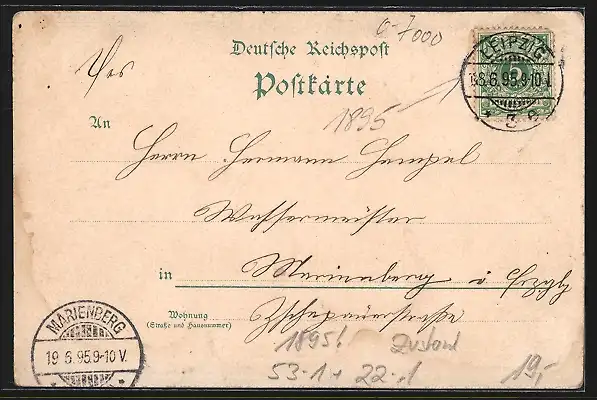 o-7000
Deutsche Reichspost
Postkarte
LEIPZIG
18.6.95.9-10
* 3 e
1895
An
Herrn Hermann Hempel
Wassermeister
in Marienberg i Erzgb
Wohnung
(Straße und Hausnummer)
Zschopauerstraße
MARIENBERG
19 6.95.9-10 V.
1895!
53-1+ 22-1
19,-